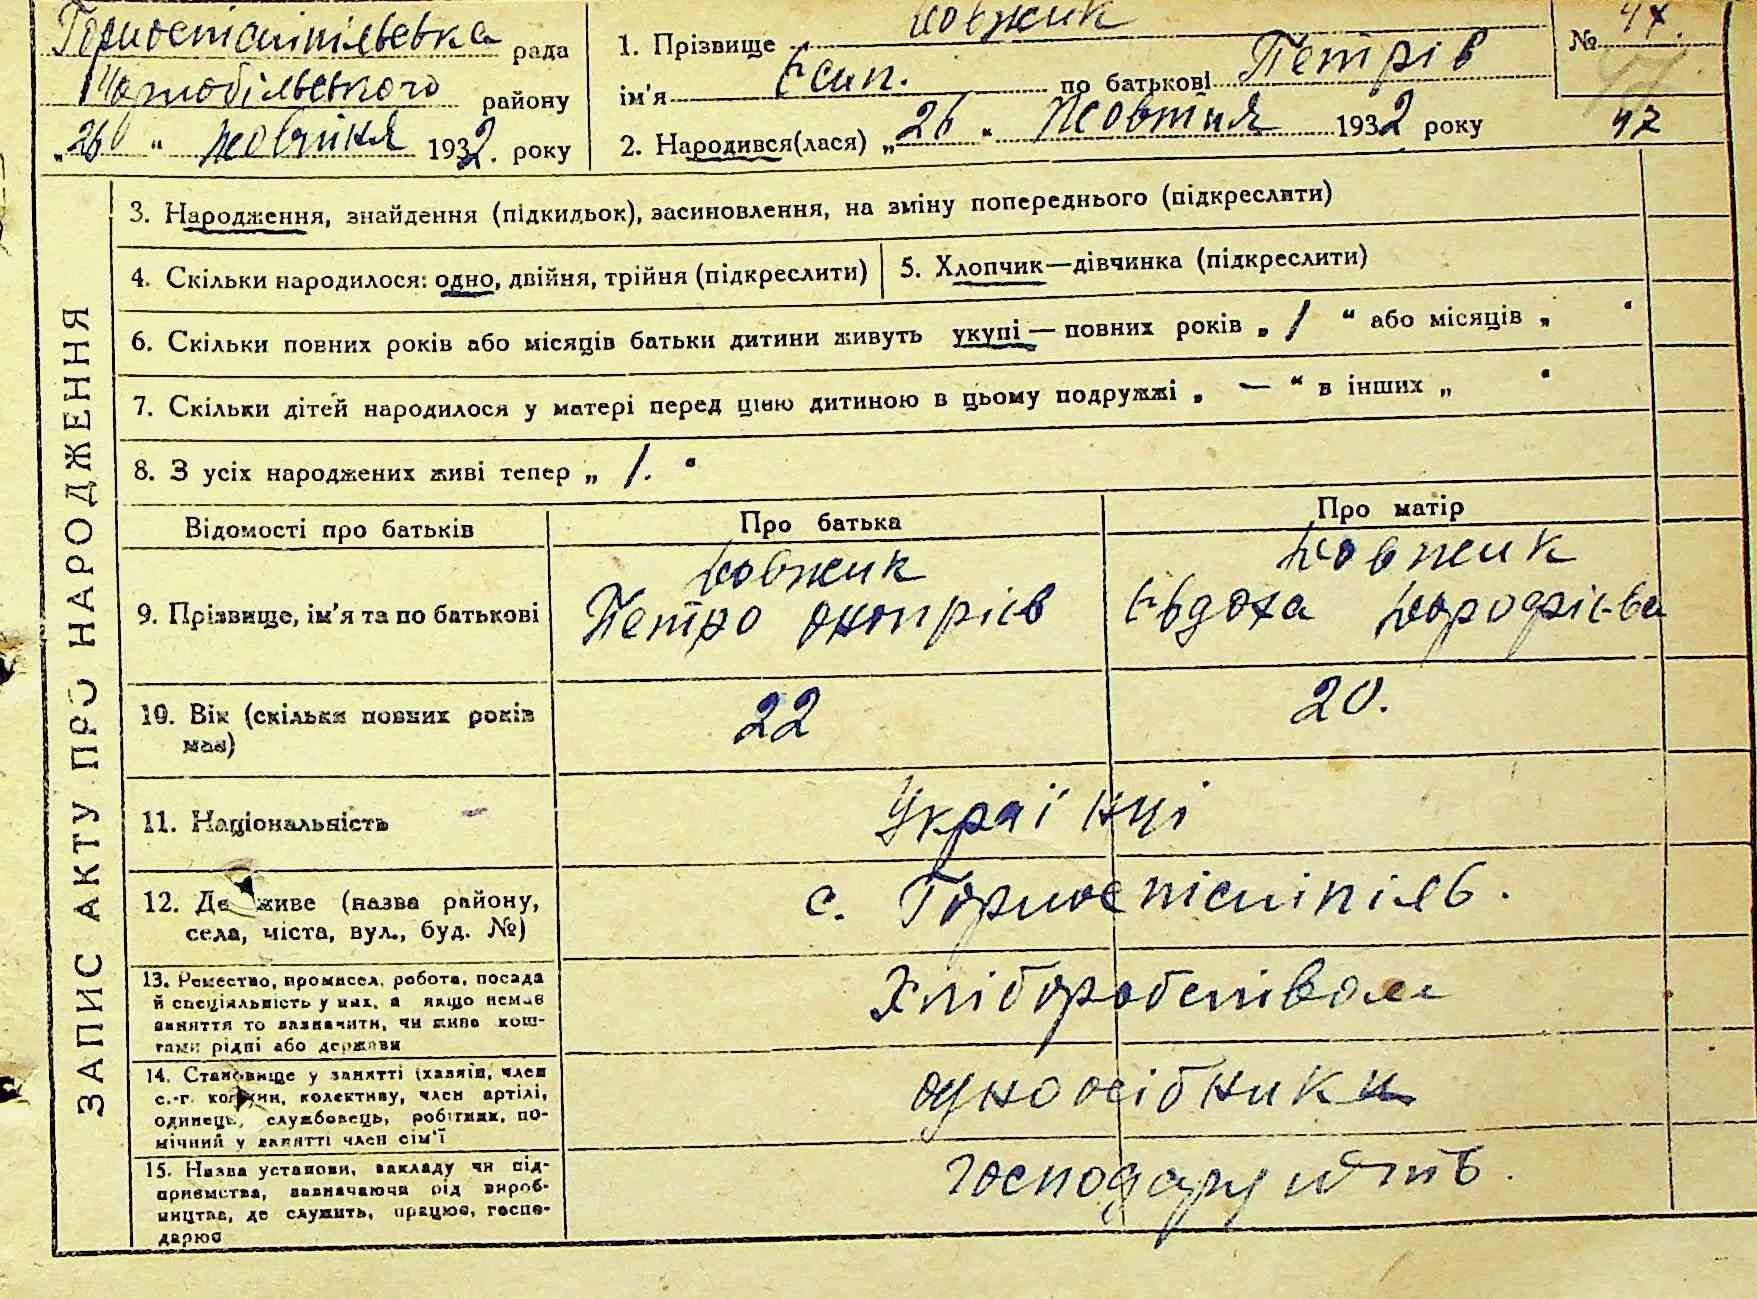 Горностайпільська рада
Чорнобільського району
„26“ Жовтня 1932. року
1. Прізвище Довжик
ім'я Єсип. по батькові Петрів
2. Народився(лася) „26“ Жовтня 1932 року
№ 47.
47
ЗАПИС АКТУ ПРО НАРОДЖЕННЯ
3. Народження, знайдення (підкидьок), засиновлення, на зміну попереднього (підкреслити)
4. Скільки народилося: одно, двійня, трійня (підкреслити)
5. Хлопчик—дівчинка (підкреслити)
6. Скільки повних років або місяців батьки дитини живуть укупі — повних років „ 1 “ або місяців „
7. Скільки дітей народилося у матері перед цією дитиною в цьому подружжі „ — “ в інших „
8. З усіх народжених живі тепер „ 1. “
Відомості про батьків
Про батька
Про матір
9. Прізвище, ім'я та по батькові
Довжик
Петро
Довжик
Євдоха
10. Вік (скільки повних років
має)
22
20.
11. Національність
Українці
12. Де живе (назва району,
села, міста, вул., буд. №)
с. Горностайпіль.
13. Ремество, промисел, робота, посада
й спеціяльність у них, а якщо немає
заняття то зазначити, чи живе кош-
тами рідні або держави
Хліборобством
14. Становище у занятті (хазяїн, член
с.-г. комуни, колективу, член артілі,
одинець, службовець, робітник, по-
мічний у занятті член сім'ї
одноосібники
15. Назва установи, закладу чи під-
приємства, зазначаючи рід вироб-
ництва, де служить, працює, госпо-
дарює
господарують.